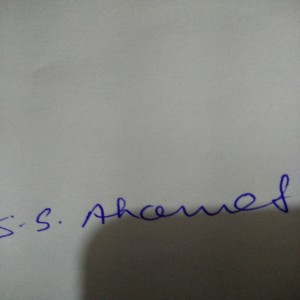 S.S. Ahamed